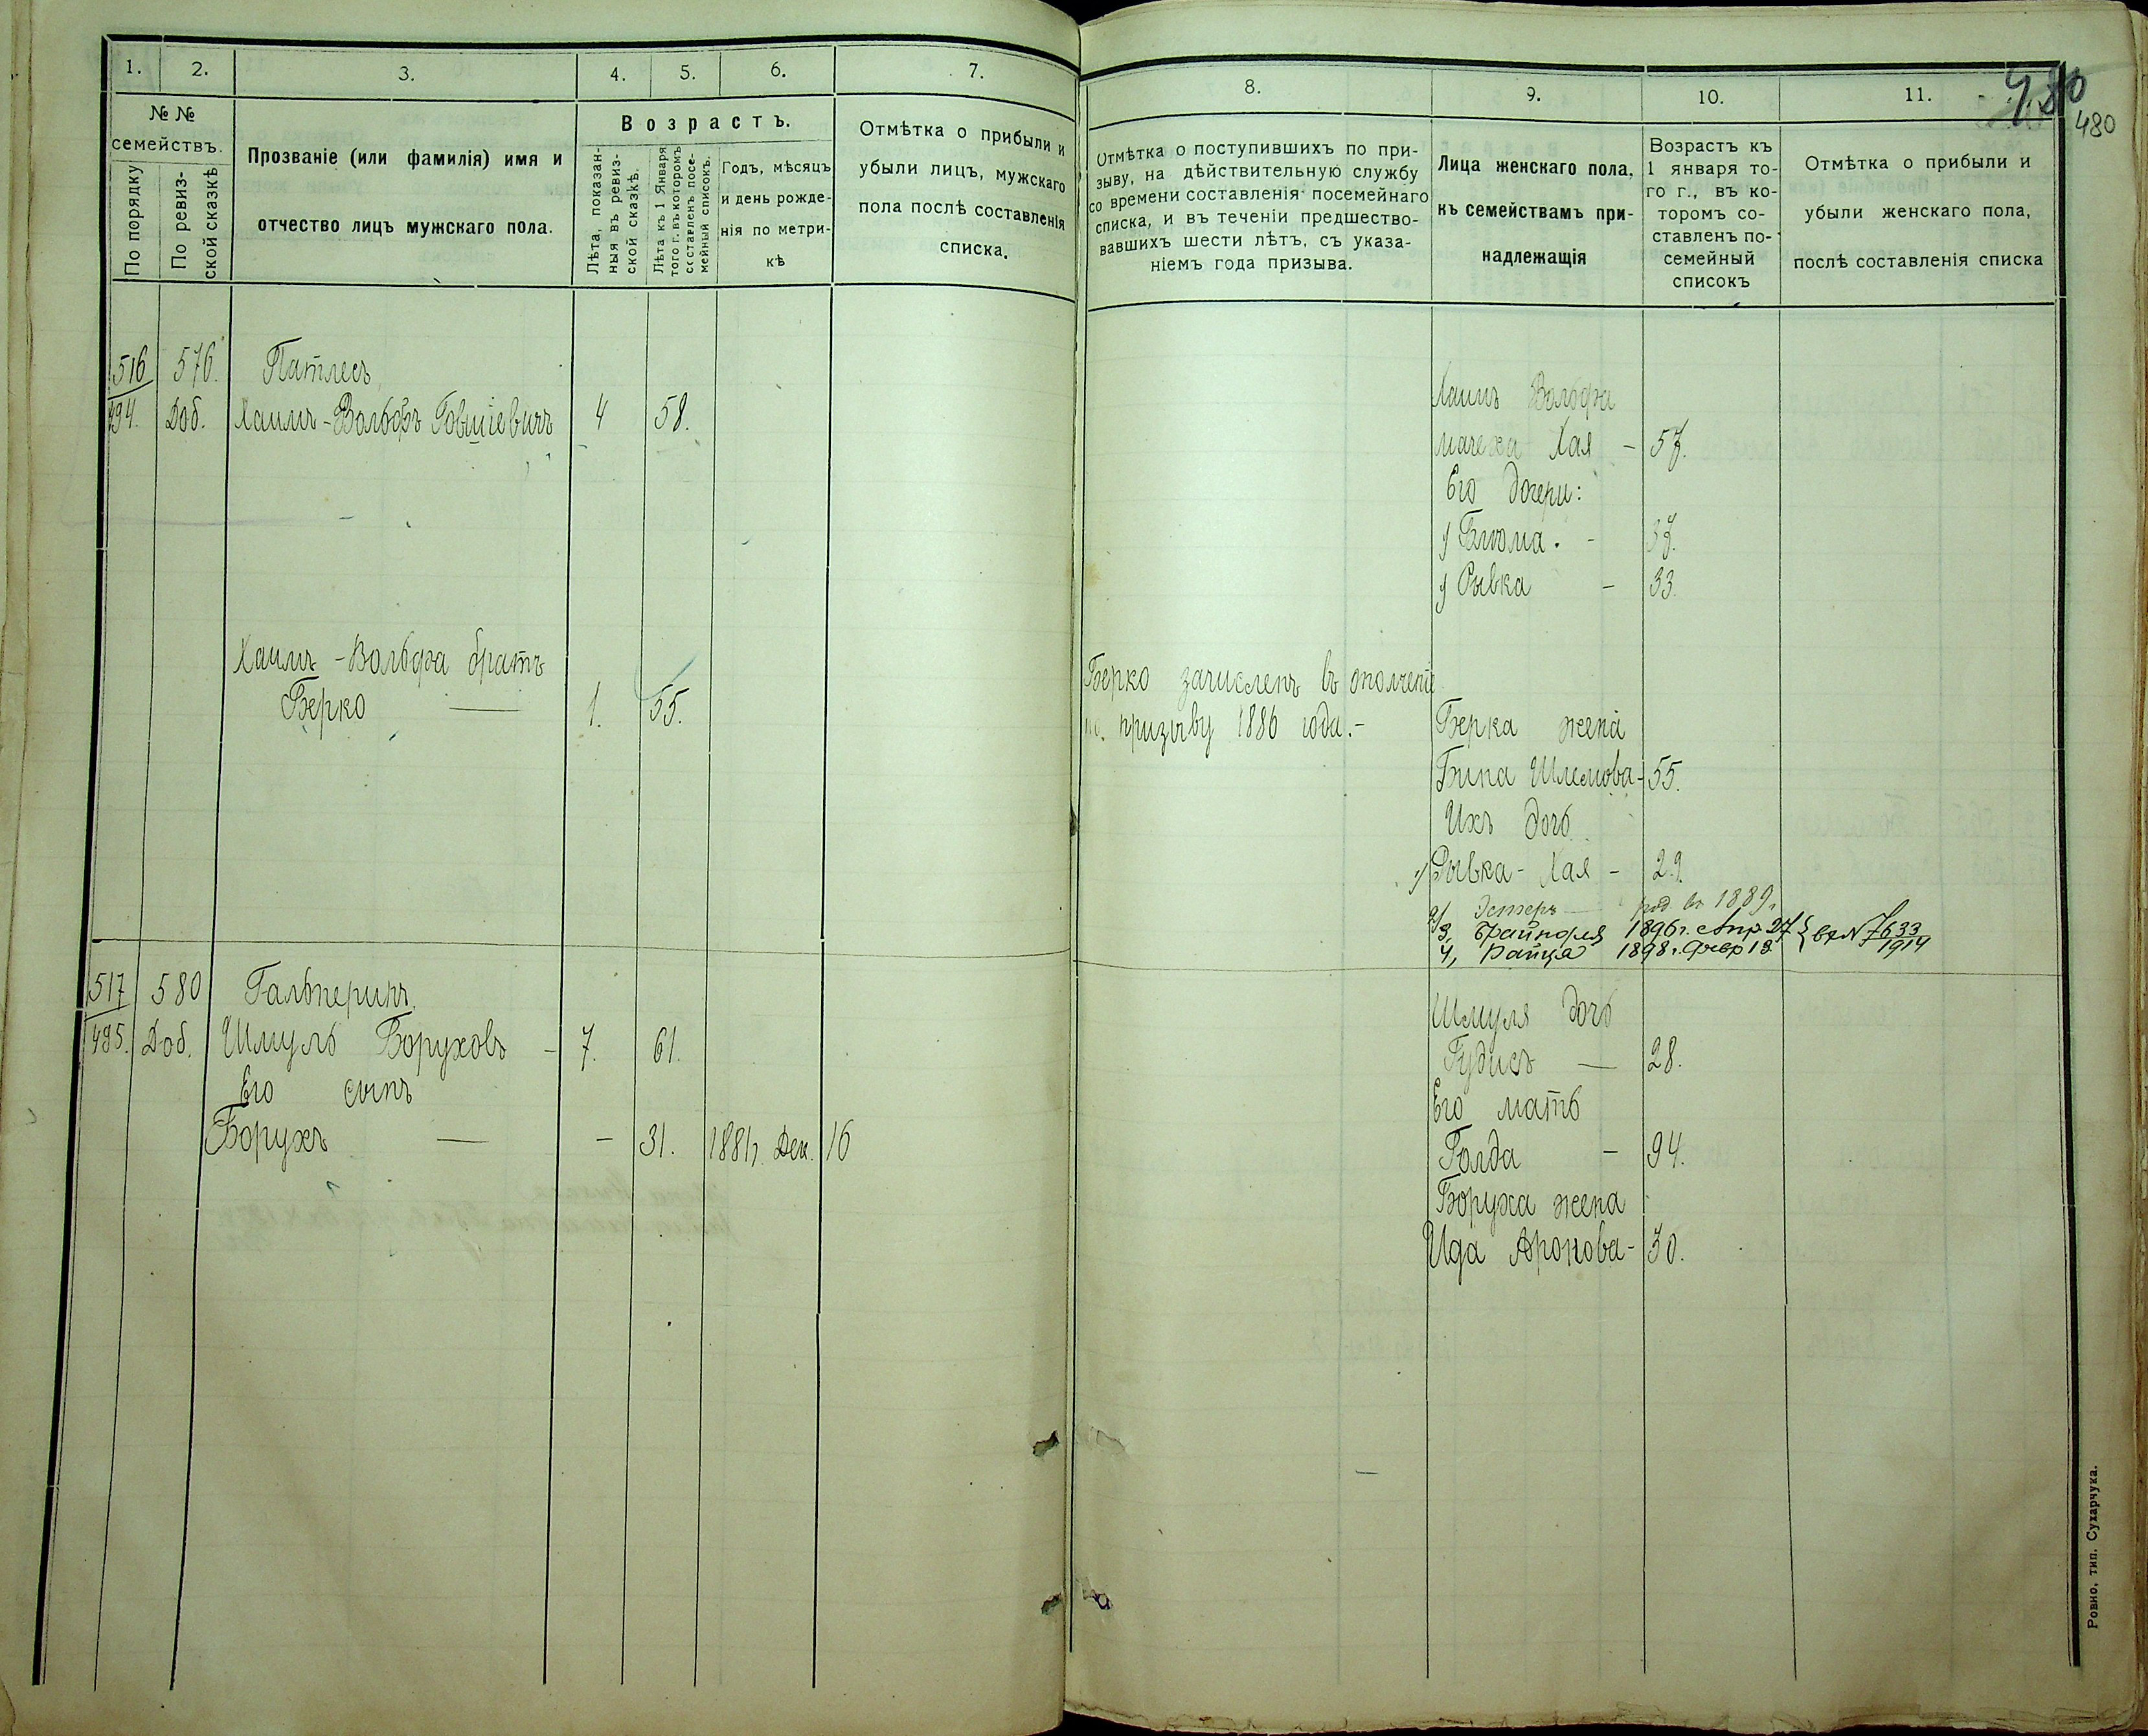 1.
2.
3.
4.
5.
6.
7.
№ №
семействъ.
По порядку
По ревиз-
ской сказкѣ
Прозваніе (или фамилія) имя и
отчество лицъ мужскаго пола.
Возрастъ.
Лѣта, показан-
ныя въ ревиз-
ской сказкѣ.
Лѣта къ 1 Января
того г. въ которомъ
составленъ посе-
мейный списокъ.
Годъ, мѣсяцъ
и день рожде-
нія по метри-
кѣ
Отмѣтка о прибыли и
убыли лицъ, мужскаго
пола послѣ составленія
списка.
516 576. Патлесъ
494. Доб. Хаимъ-Вольфъ Говшіевичъ 4 58.
Хаимъ-Вольфа братъ
Берко — 1. 55.
517 580 Гальперинъ
495. Доб. Шмуль Боруховъ - 7. 61.
Его сынъ
Борухъ — - 31. 1881г. Дек. 16
8.
9.
10.
11.
480
480
Отмѣтка о поступившихъ по при-
зыву, на дѣйствительную службу
со времени составленія посемейнаго
списка, и въ теченіи предшество-
вавшихъ шести лѣтъ, съ указа-
ніемъ года призыва.
Лица женскаго пола,
къ семействамъ при-
надлежащія
Возрастъ къ
1 января то-
го г., въ ко-
торомъ со-
ставленъ по-
семейный
списокъ
Отмѣтка о прибыли и
убыли женскаго пола,
послѣ составленія списка
Хаимъ Вольфа
мачеха Хая - 57.
Его дочери:
Блюма. - 37.
Рывка - 33.
Берко зачисленъ въ ополченіе
по призыву 1886 года.-
Берка жена
Бина Шлемова- 55.
Ихъ дочь
1/ Рывка-Хая - 29.
2/ Эстеръ — род. въ 1889г.
3, Фрайндля 1896г. Апр. 27 } вх № 7633
4, Райця 1898г. Февр 18 1914
Шмуля дочь
Гудисъ — 28.
Его мать
Голда - 94.
Боруха жена
Ида Аронова- 30.
Ровно, тип. Сухарчука.